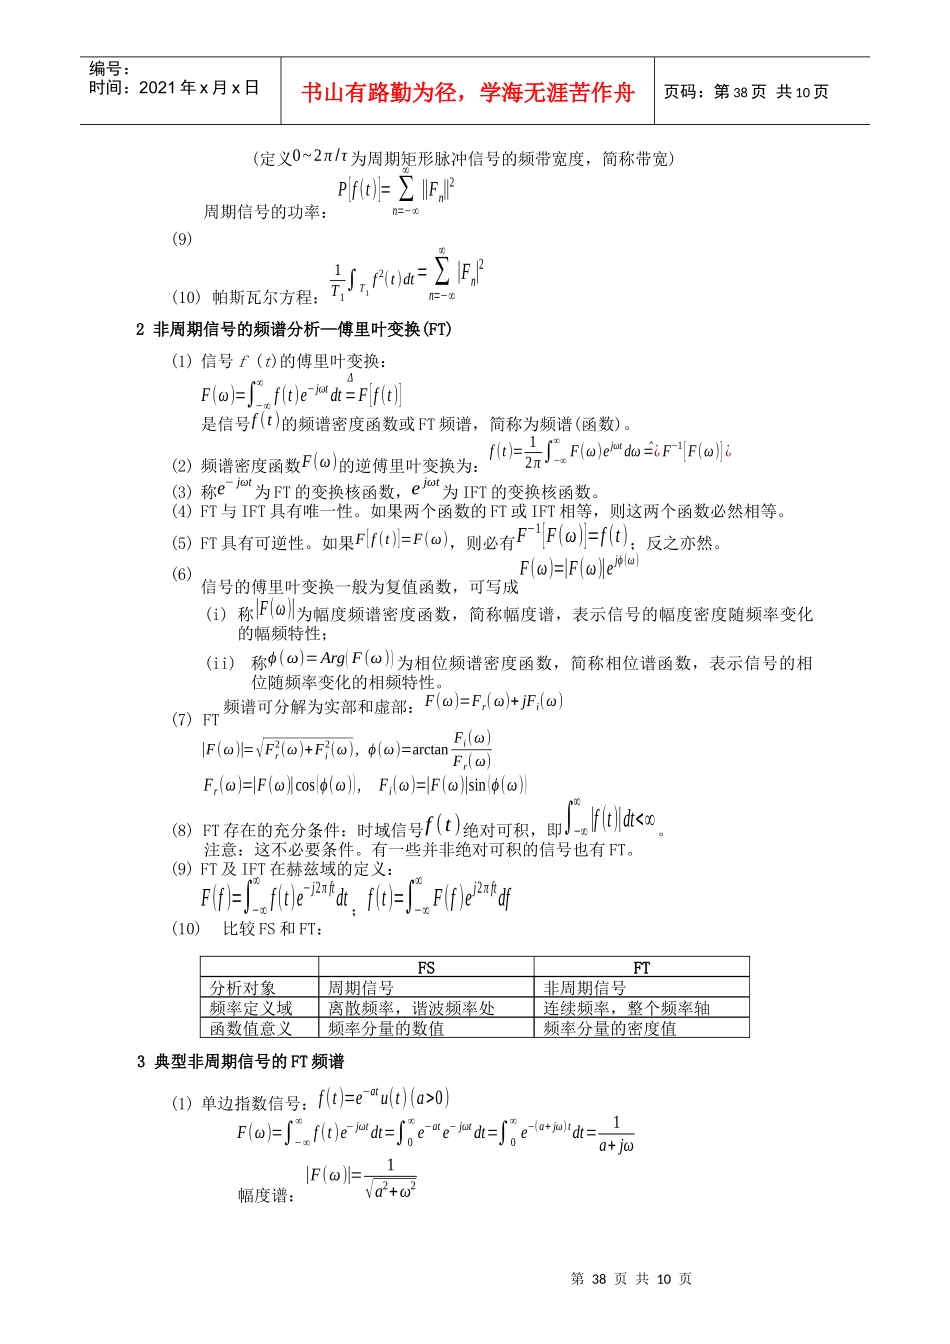 编号：
时间：2021年x月x日
书山有路勤为径，学海无涯苦作舟
页码：第38页 共10页
(定义0~2π/τ为周期矩形脉冲信号的频带宽度，简称带宽)
周期信号的功率：P[f(t)]=∑_{n=−∞}^{∞}||F_n||^2
(9)
(10) 帕斯瓦尔方程：1/T_1 ∫_{T_1} f^2(t)dt=∑_{n=−∞}^{∞}|F_n|^2
2 非周期信号的频谱分析—傅里叶变换(FT)
(1) 信号 f (t)的傅里叶变换：
F(ω)=∫_{−∞}^{∞} f(t)e^{−jωt}dt =^Δ F[f(t)]
是信号f(t)的频谱密度函数或 FT 频谱，简称为频谱(函数)。
(2) 频谱密度函数F(ω)的逆傅里叶变换为：f(t)=1/2π ∫_{−∞}^{∞} F(ω)e^{jωt}dω =̂¿F^{−1}[F(ω)]¿
(3) 称e^{−jωt}为 FT 的变换核函数，e^{jωt}为 IFT 的变换核函数。
(4) FT 与 IFT 具有唯一性。如果两个函数的 FT 或 IFT 相等，则这两个函数必然相等。
(5) FT 具有可逆性。如果F[f(t)]=F(ω)，则必有F^{−1}[F(ω)]=f(t)；反之亦然。
(6) 信号的傅里叶变换一般为复值函数，可写成F(ω)=|F(ω)|e^{jϕ(ω)}
(i) 称|F(ω)|为幅度频谱密度函数，简称幅度谱，表示信号的幅度密度随频率变化
的幅频特性；
(ii) 称ϕ(ω)=Arg(F(ω))为相位频谱密度函数，简称相位谱函数，表示信号的相
位随频率变化的相频特性。
(7) FT 频谱可分解为实部和虚部：F(ω)=F_r(ω)+jF_i(ω)
|F(ω)|=√(F_r^2(ω)+F_i^2(ω))，ϕ(ω)=arctan F_i(ω)/F_r(ω)
F_r(ω)=|F(ω)|cos(ϕ(ω))， F_i(ω)=|F(ω)|sin(ϕ(ω))
(8) FT 存在的充分条件：时域信号f(t)绝对可积，即∫_{−∞}^{∞}|f(t)|dt<∞。
注意：这不必要条件。有一些并非绝对可积的信号也有 FT。
(9) FT 及 IFT 在赫兹域的定义：
F(f)=∫_{−∞}^{∞} f(t)e^{−j2πft}dt；f(t)=∫_{−∞}^{∞} F(f)e^{j2πft}df
(10) 比较 FS 和 FT：
FS FT
分析对象 周期信号 非周期信号
频率定义域 离散频率，谐波频率处 连续频率，整个频率轴
函数值意义 频率分量的数值 频率分量的密度值
3 典型非周期信号的 FT 频谱
(1) 单边指数信号：f(t)=e^{−at}u(t)(a>0)
F(ω)=∫_{−∞}^{∞} f(t)e^{−jωt}dt=∫_0^∞ e^{−at}e^{−jωt}dt=∫_0^∞ e^{−(a+jω)t}dt=1/(a+jω)
幅度谱：|F(ω)|=1/√(a^2+ω^2)
第 38 页 共 10 页